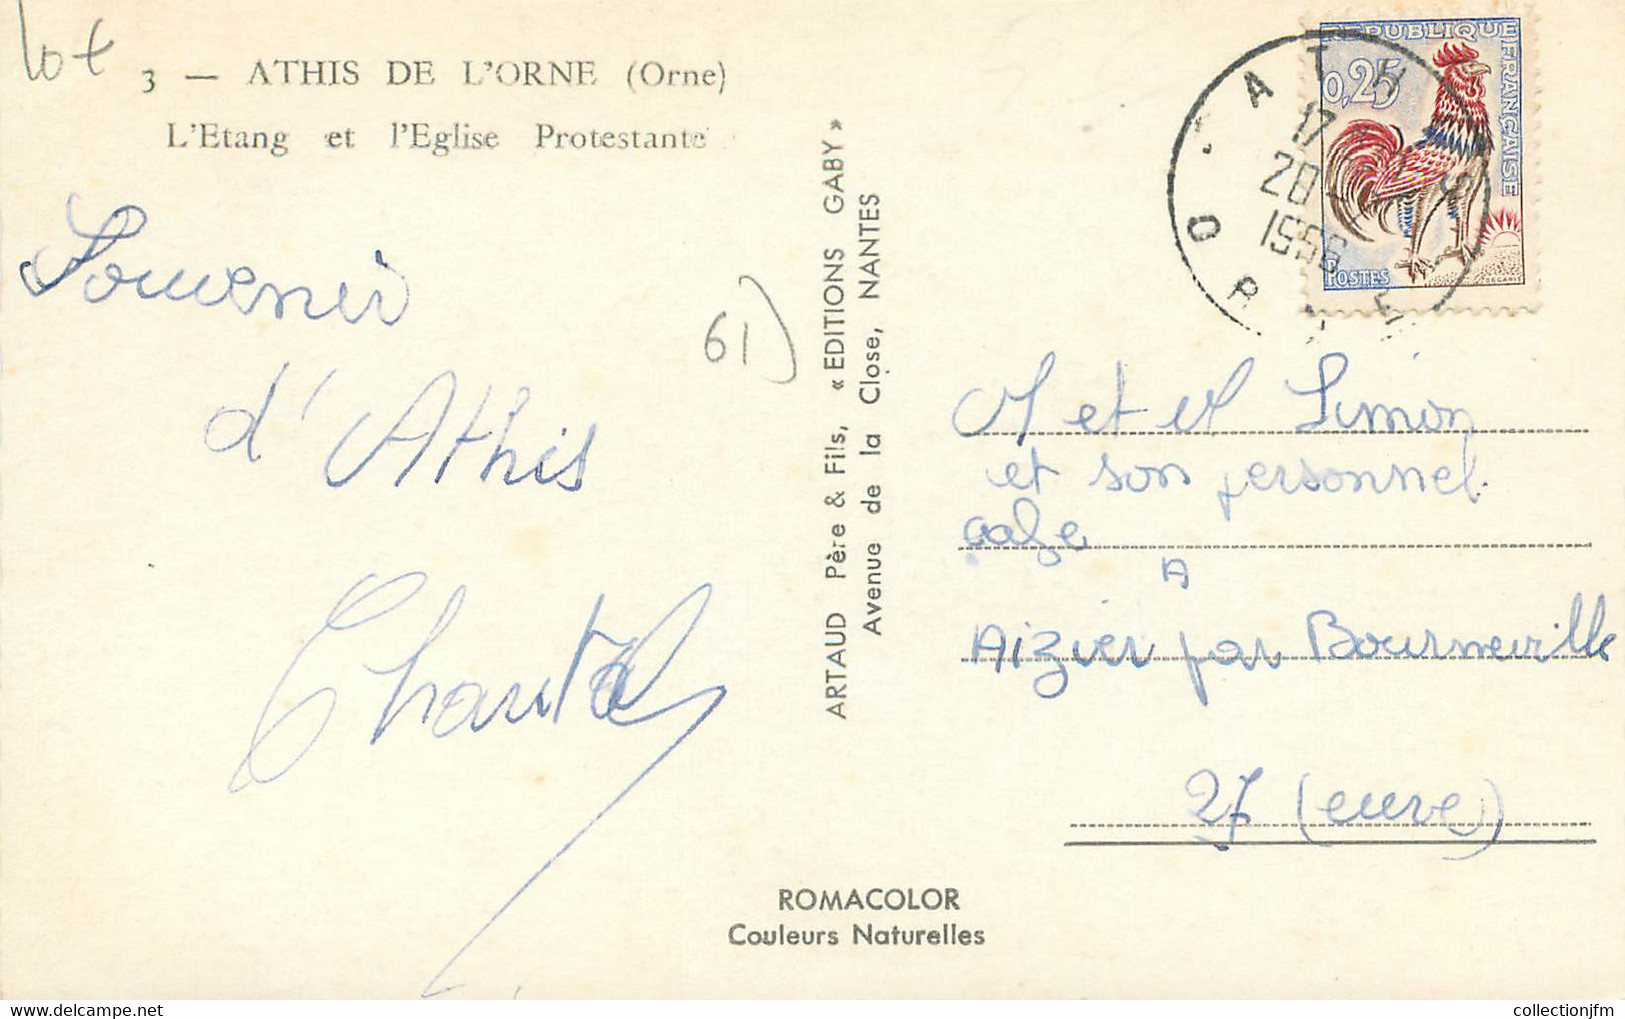 lot
3 — ATHIS DE L'ORNE (Orne)
L'Etang et l'Eglise Protestante
Souvenir
d'Athis
Chantal
61)
ARTAUD Père & Fils, « EDITIONS GABY »
Avenue de la Close, NANTES
REPUBLIQUE FRANÇAISE
0,25
POSTES
ATHIS
17
20
ORNE
M et M Simon
et son personnel
cafe
A
Aizier par Bourneville
27 (eure)
ROMACOLOR
Couleurs Naturelles
collectionjfm